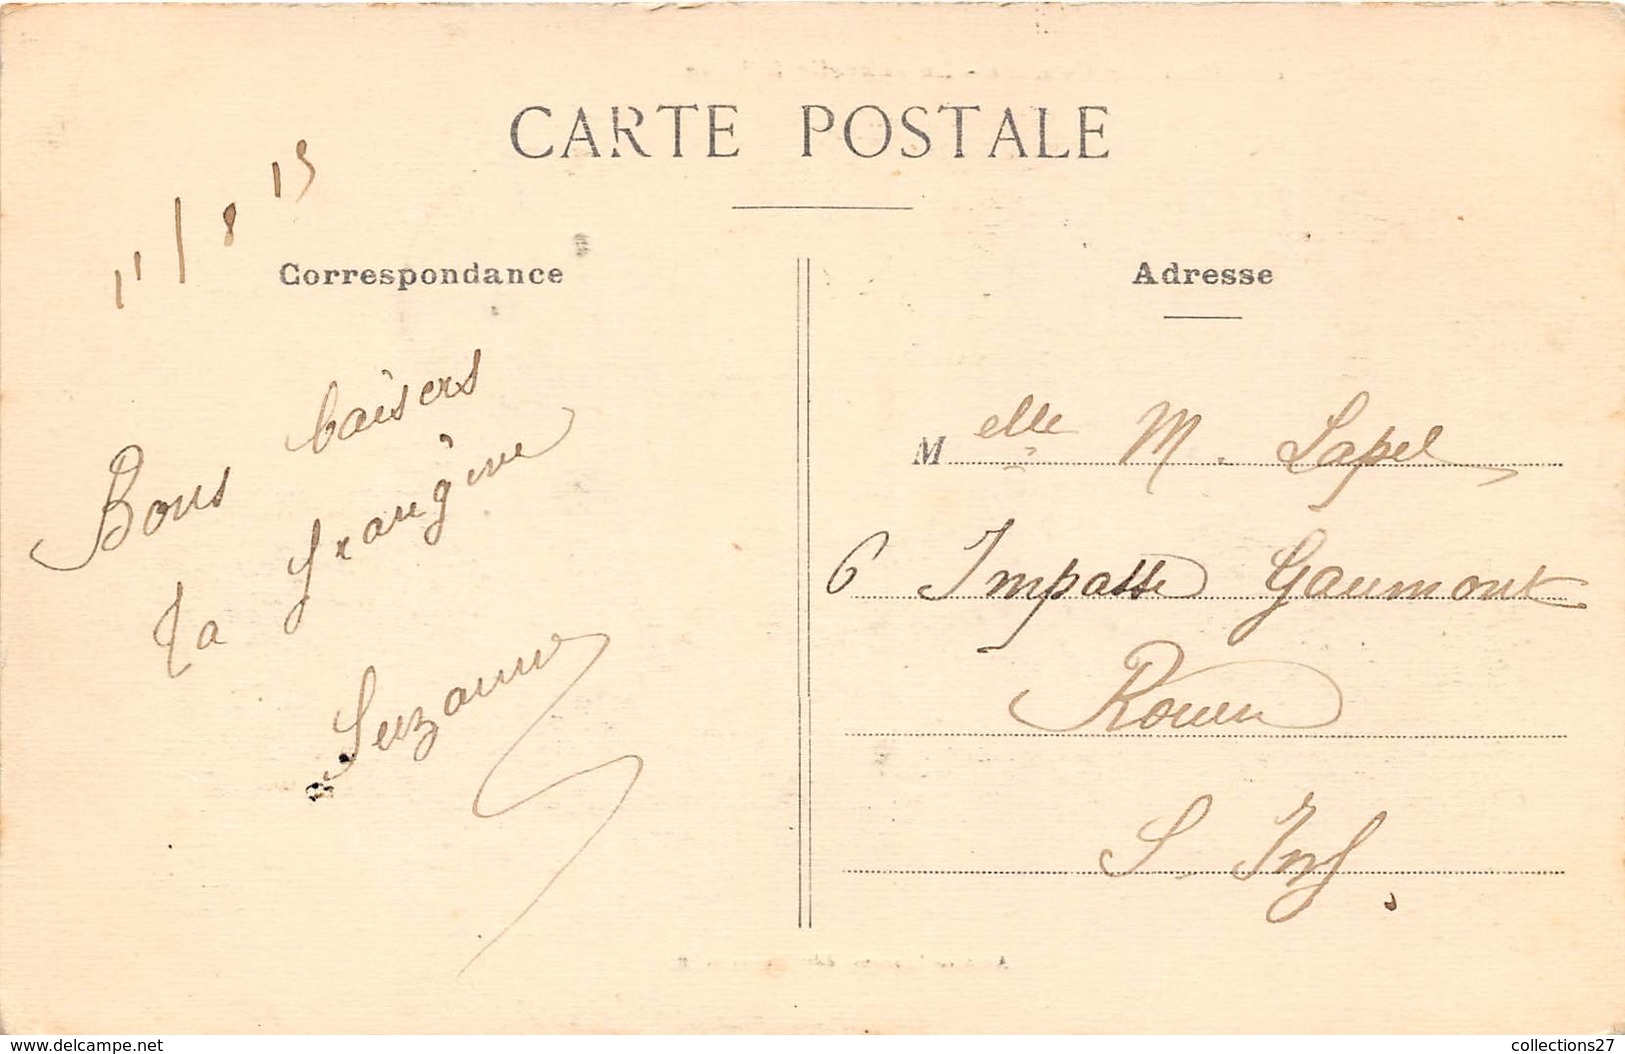 CARTE POSTALE
11/8 15
Correspondance
Bons baisers
Ta frangine
Suzanne
Adresse
Melle M. Lapel
6 Impasse Gaumont
Rouen
S. Inf.
www.delcampe.net
collections27